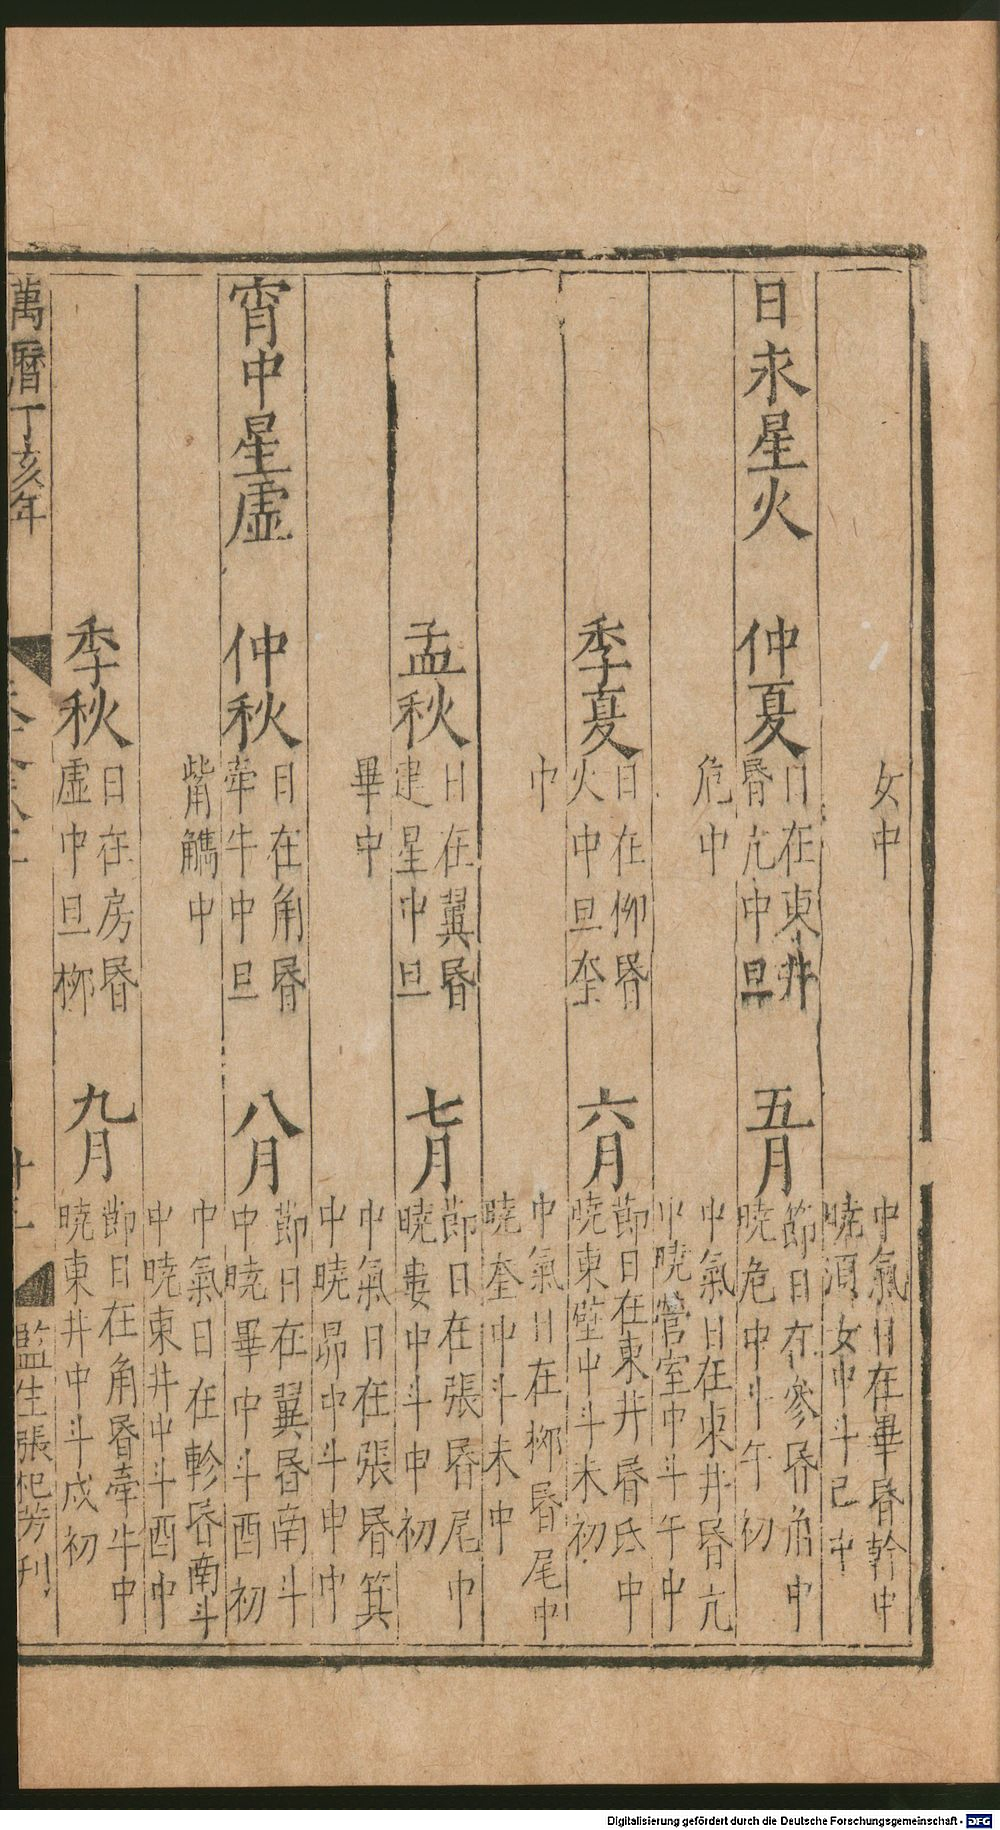 女中
中氣日在畢昏幹中
曉須女中斗巳中
日永星火
仲夏
日在東井
昏亢中旦
危中
五月
節日在參昏角中
曉危中斗午初
中氣日在東井昏亢
中曉營室中斗午中
季夏
日在柳昏
火中旦奎
中
六月
節日在東井昏氐中
曉東壁中斗未初
中氣日在柳昏尾中
曉奎中斗未中
孟秋
日在翼昏
建星中旦
畢中
七月
節日在張昏尾中
曉婁中斗申初
中氣日在張昏箕
中曉昴中斗申中
宵中星虛
仲秋
日在角昏
牽牛中旦
觜觿中
八月
節日在翼昏南斗
中曉畢中斗酉初
中氣日在軫昏南斗
中曉東井中斗酉中
季秋
日在房昏
虛中旦柳
九月
節日在角昏牽牛中
曉東井中斗戌初
萬曆丁亥年
監生張杞芳刊
Digitalisierung gefördert durch die Deutsche Forschungsgemeinschaft - DFG